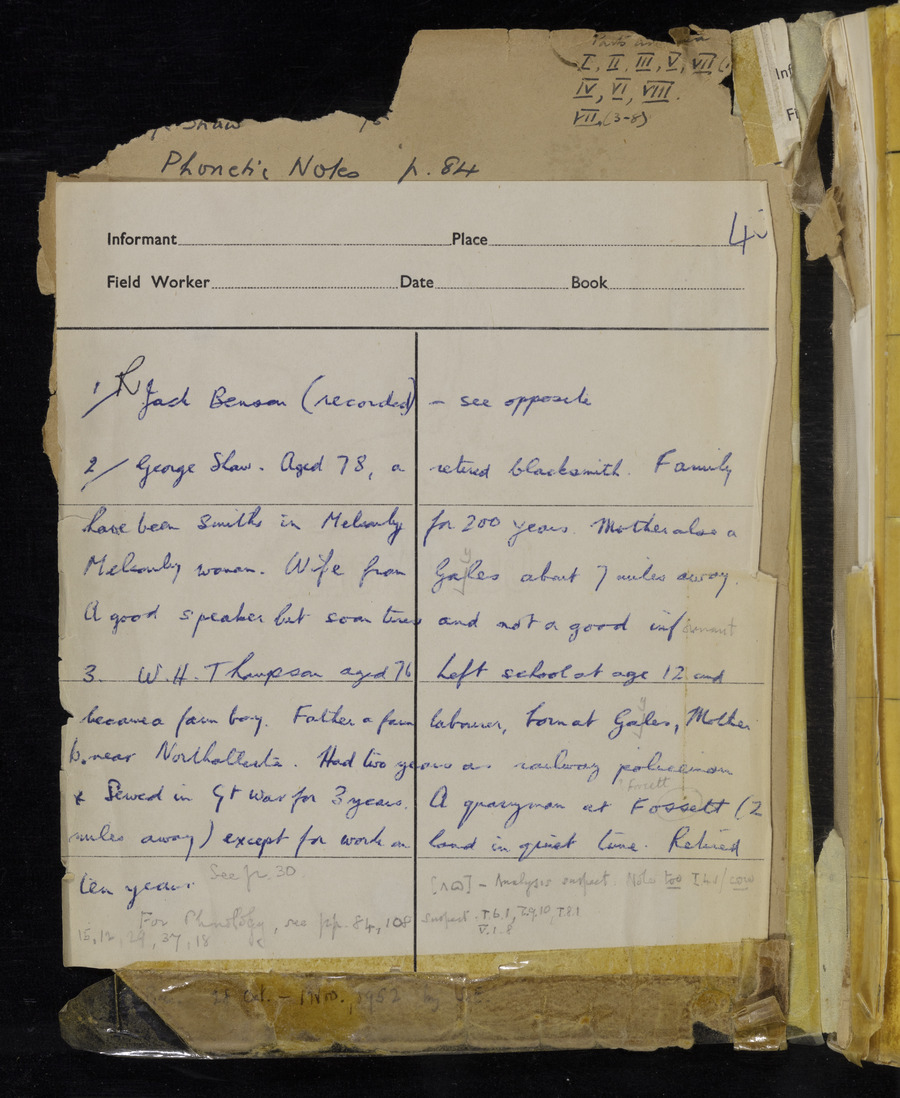 I, II, III, V, VII (
IV, VI, VIII.
VII (3-8)
Shaw
Phonetic Notes p. 84
Inf
Fi
Informant Place 4i
Field Worker Date Book
1/ Jack Benson (recorded) - see opposite
2/ George Shaw. Aged 78, a retired blacksmith. Family
have been Smiths in Melsonby for 200 years. Mother also a
Melsonby woman. Wife from Gayles about 7 miles away.
A good speaker but soon tires and not a good informant
3. W.H. Thompson aged 76 Left school at age 12 and
became a farm boy. Father a farm labourer, born at Gayles, Mother
b. near Northallerton. Had two years as railway policeman
& Served in Gt War for 3 years. A quarryman at Fossett (2
Forcett
miles away) except for work on land in quiet time. Retired
ten years. See p. 30.
- Analysis suspect. Notes too I.4.1/cow
For Phonology, see pp. 84, 108 suspect. I.6.1, I.9,10, I.8.1
15, 12, 29, 37, 18 V.1.8
Oct. - 1 Nov. 1952 by